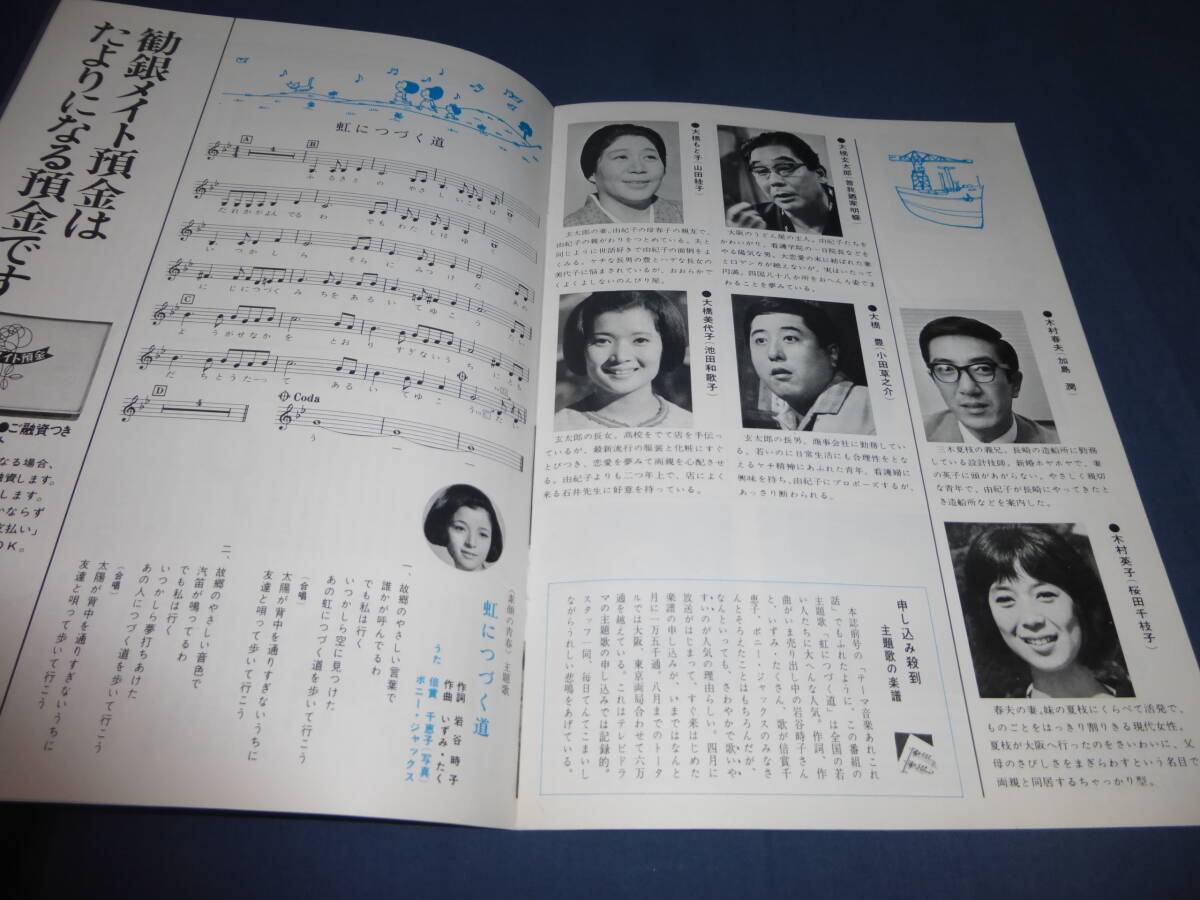 勧銀メイト預金は
たよりになる預金です
イト預金
●ご融資つき
なる場合、
融資します。
します。
かならず
支払い」
OK。
虹につづく道
A
4
B
ふるさと の やさ しいことば で
だれかがよん でる わ でも わたしは ゆ く
いつか しら そらに みつけ た あの
に じ につづく みちをあるい てゆこう た い
C
よ うが せなかを とおり すぎないう ちに とも
だ ちとうたっ て あるい てゆこ う
D
4
Coda
う
〈素顔の青春〉主題歌
虹につづく道
作詞 岩谷時子
作曲 いずみ・たく
うた 倍賞 千恵子(写真)
ボニー・ジャックス
一、故郷のやさしい言葉で
誰かが呼んでるわ
でも私は行く
いつかしら空に見つけた
あの虹につづく道を歩いて行こう
(合唱)
太陽が背中を通りすぎないうちに
友達と唄って歩いて行こう
二、故郷のやさしい音色で
汽笛が鳴ってるわ
でも私は行く
いつかしら夢打ちあけた
あの人につづく道を歩いて行こう
(合唱)
太陽が背中を通りすぎないうちに
友達と唄って歩いて行こう
●大橋玄太郎(曽我廼家明蝶)
大阪のうどん屋の主人。由紀子たちを
かわいがり、看護学院の一日院長などを
やる陽気な男。大恋愛の末に結ばれた妻
と口ゲンカが絶えないが、実はいたって
円満。四国八十八か所をおへんろ姿でま
わることを夢みている。
●大橋もと子(山田桂子)
玄太郎の妻。由紀子の母春子の親友で、
由紀子の親がわりをつとめている。夫と
同じように世話好きで由紀子の面倒をよ
くみる。ケチな長男の豊とハデな長女の
美代子に悩まされているが、おおらかで
くよくよしないのんびり屋。
●大橋 豊(小田草之介)
玄太郎の長男。商事会社に勤務してい
る。若いのに日常生活にも合理性をとな
えるケチ精神にあふれた青年。看護婦に
興味を持ち、由紀子にプロポーズするが、
あっさり断わられる。
●大橋美代子(池田和歌子)
玄太郎の長女。高校をでて店を手伝っ
ているが、最新流行の服装と化粧にすぐ
とびつき、恋愛を夢みて両親を心配させ
る。由紀子よりも二つ年上で、店によく
来る石井先生に好意を持っている。
●木村春夫(加島 潤)
三木夏枝の義兄。長崎の造船所に勤務
している設計技師。新婚ホヤホヤで、妻
の英子に頭があがらない。やさしく親切
な青年で、由紀子が長崎にやってきたと
き造船所などを案内した。
●木村英子(桜田千枝子)
春夫の妻。妹の夏枝にくらべて活発で、
ものごとをはっきり割りきる現代女性。
夏枝が大阪へ行ったのをさいわいに、父
母のさびしさをまぎらわすという名目で
両親と同居するちゃっかり型。
申し込み殺到
主題歌の楽譜
本誌前号の「テーマ音楽あれこれ
話」でもふれたように、この番組の
主題歌、「虹につづく道」は全国の若
い人たちに大へんな人気。作詞、作
曲がいま売り出し中の岩谷時子さん
と、いずみ・たくさん、歌が倍賞千
恵子、ボニー・ジャックスのみなさ
んとそろえたことはもちろんだが、
なんといっても、さわやかで歌いや
すいのが人気の理由らしい。四月に
放送がはじまって、すぐ来はじめた
楽譜の申し込みが、いまではなんと
月に一万五千通。八月までのトータ
ルでは大阪、東京両局合わせて六万
通を越えている。これはテレビドラ
マの主題歌の申し込みでは記録的。
スタッフ一同、毎日てんてこまいし
ながらうれしい悲鳴をあげている。